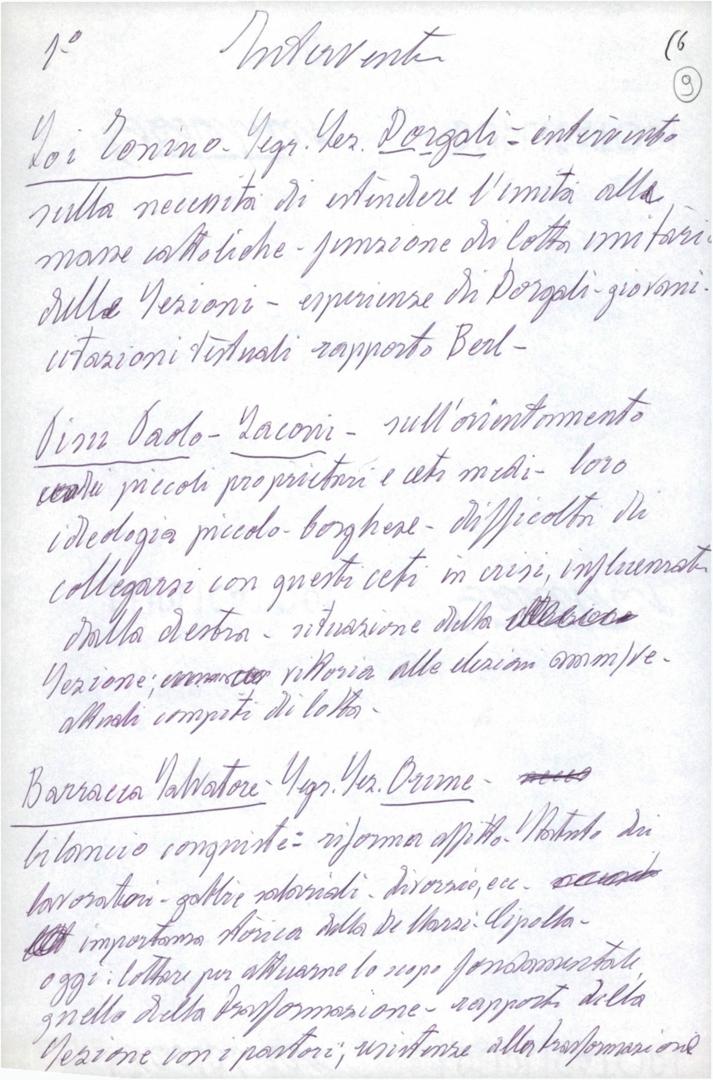 1° Interventi 16
9
Loi Tonino - Segr. Sez. Dorgali = intervento
sulla necessità di estendere l'unità alle
masse cattoliche - funzione di lotta unitaria
delle Sezioni - esperienze di Dorgali - giovani -
citazioni testuali rapporto Berl -
Pisu Paolo - Laconi - sull'orientamento
dei piccoli proprietari e ceti medi - loro
ideologia piccolo-borghese - difficoltà di
collegarsi con questi ceti in crisi, influenzati
dalla destra - situazione della
Sezione; vittoria alle elezioni amm/ve -
attuali compiti di lotta -
Barracca Salvatore - Segr. Sez. Orune -
bilancio conquiste = riforma affitto - Statuto dei
lavoratori - gabbie salariali - divorzio, ecc -
importanza storica della De Marzi-Cipolla -
oggi: lottare per attuarne lo scopo fondamentale,
quello della trasformazione - rapporti della
Sezione con i pastori; resistenze alla trasformazione